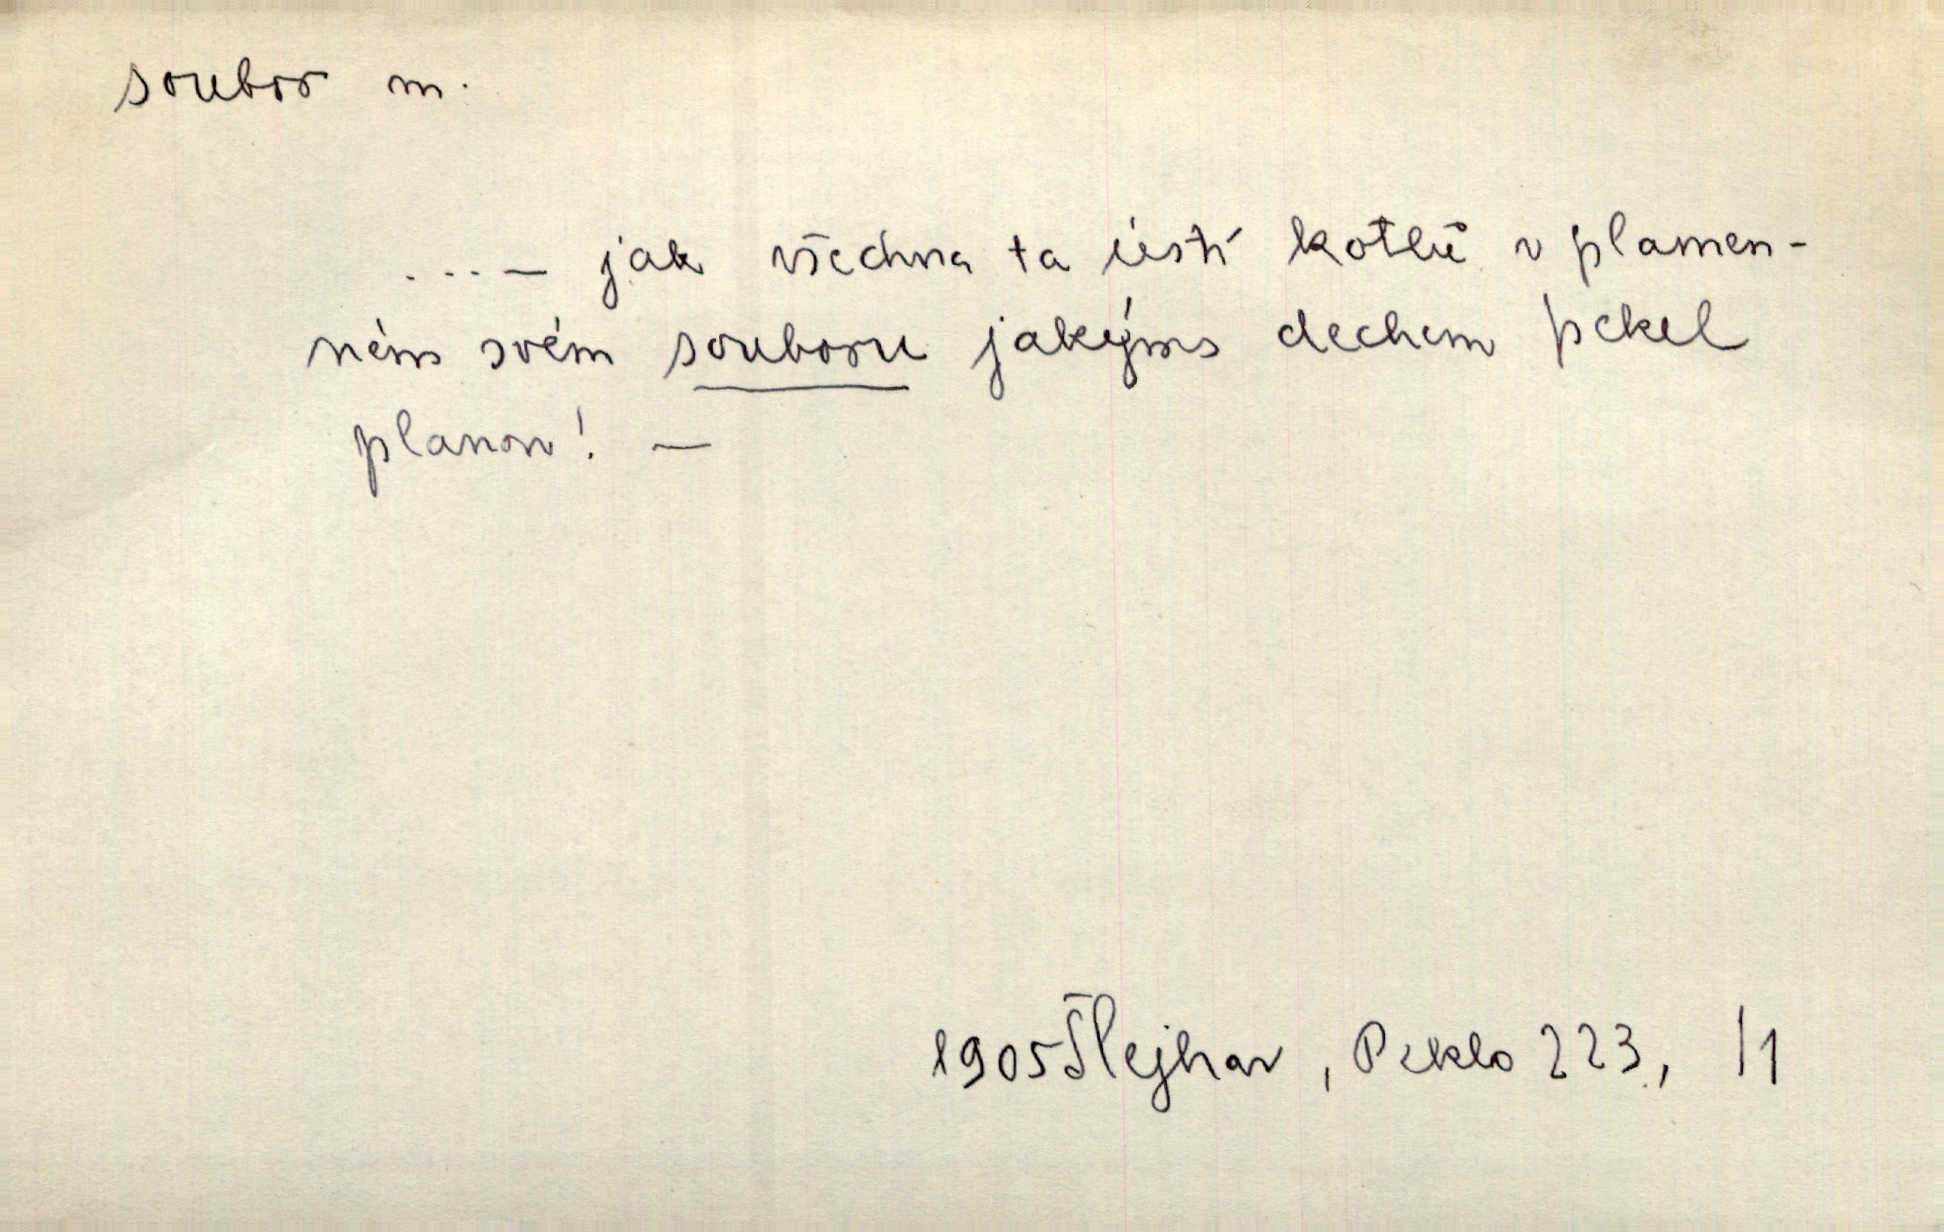 soubor m.
. . . . — jak všechna ta ústí kotlů v plamen-
ném svém souboru jakýms dechem pekel
planou! —
1905 Šlejhar, Peklo 223, /1